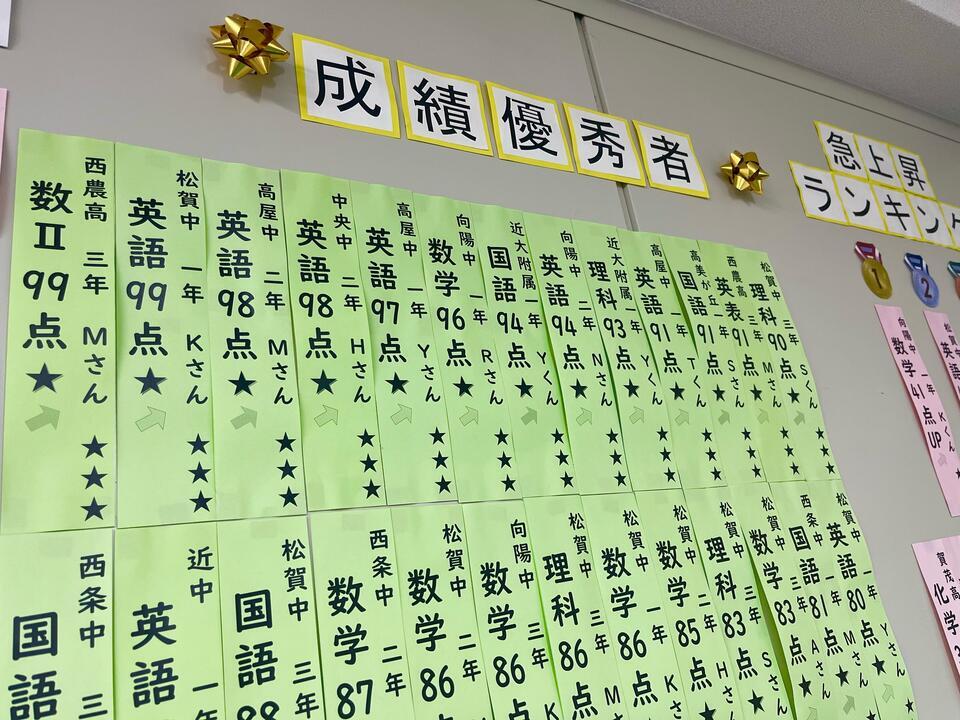 成績優秀者
急上昇
ランキング
西農高 三年 Mさん
数Ⅱ 99点★
★★★
松賀中 一年 Kさん
英語 99点★
★★★
高屋中 二年 Mさん
英語 98点★
★★★
中央中 二年 Hさん
英語 98点★
★★★
高屋中 一年 Yさん
英語 97点★
★★★
向陽中 一年 Rさん
数学 96点★
★★★
近大附属一年 Yくん
国語 94点★
★★★
向陽中 二年 Nさん
英語 94点★
★★★
近大附属一年 Yくん
理科 93点★
★★★
高屋中 一年 Tくん
英語 91点★
★★★
高美が丘一年 Sさん
国語 91点★
★★★
西農高 三年 Mさん
英表 91点★
★★★
松賀中 三年 Sくん
理科 90点★
★★★
西条中 三
国語
近中 一
英語
松賀中 三年
国語 88
西条中 二年
数学 87
松賀中 二年
数学 86
向陽中 三年
数学 86
松賀中 三年 M
理科 86点
松賀中 一年 K
数学 86点
松賀中 二年 Hさん
数学 85点★
松賀中 三年 Sさん
理科 83点★
松賀中 三年 Aさん
数学 83点★
西条中 一年 Mさん
国語 81点★
松賀中 一年 Yさん
英語 80点★
1
2
向陽中 一年 Kくん
数学 41点UP
英語
賀茂高
化学